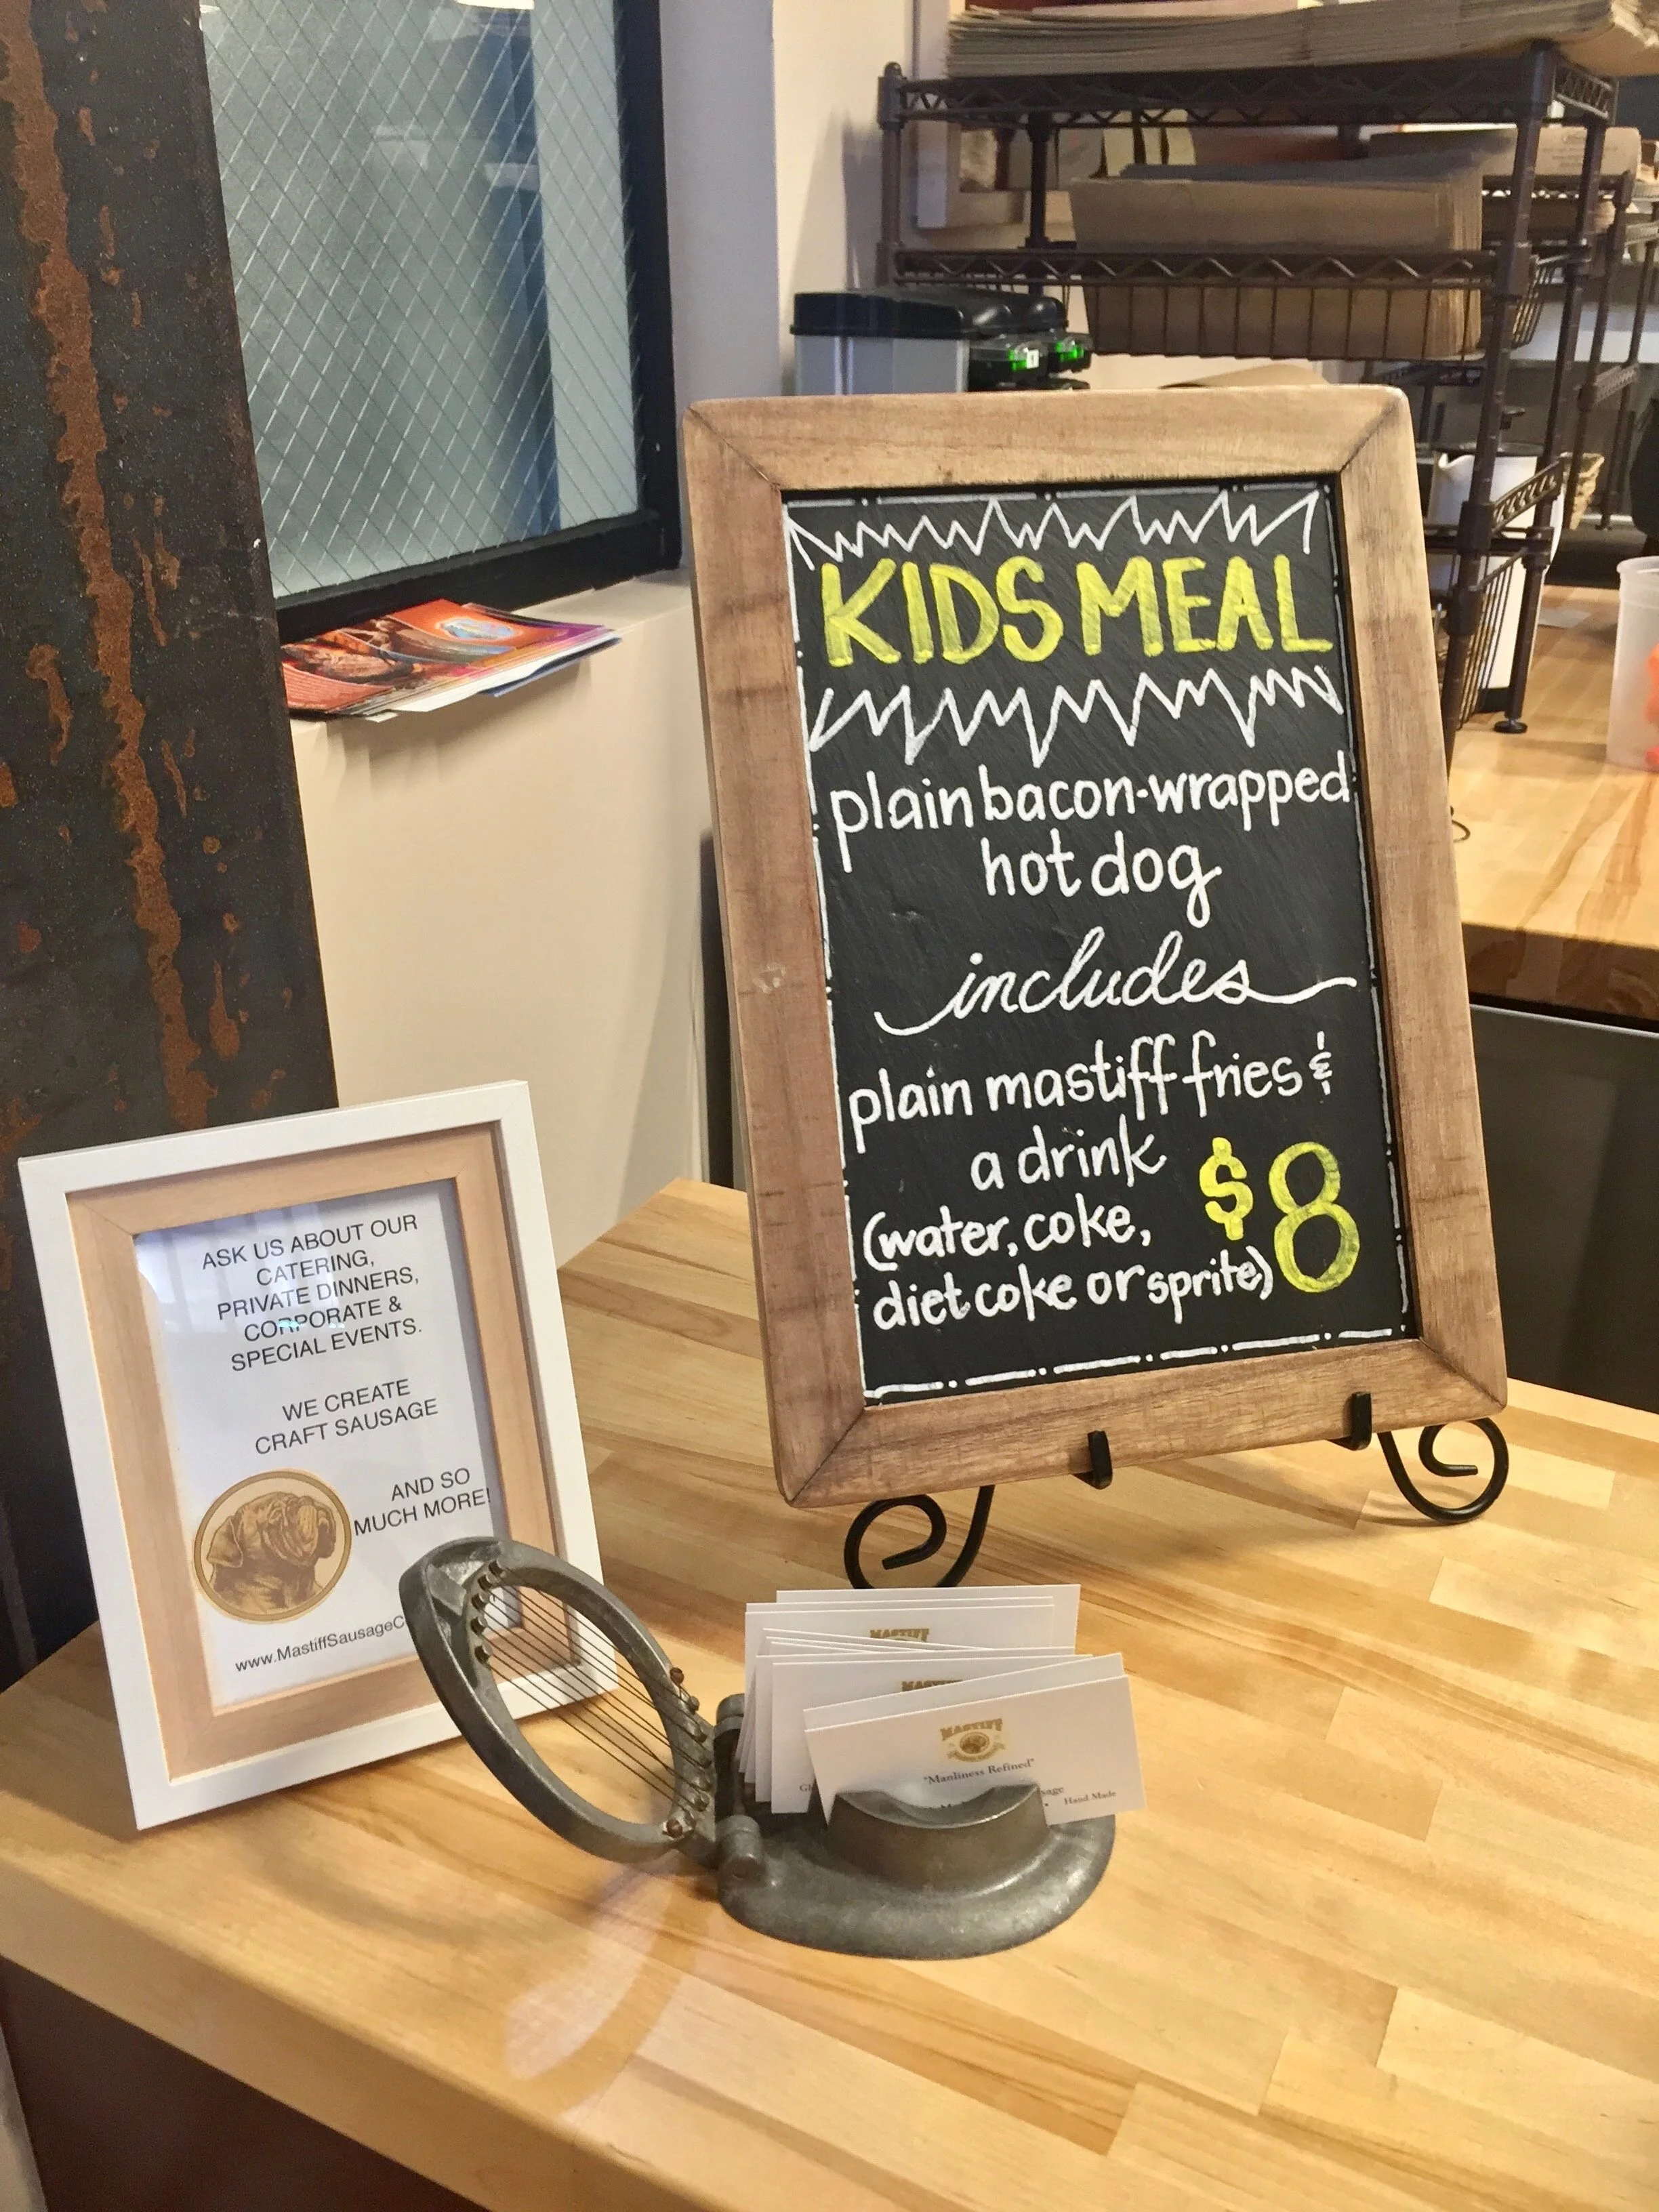 KIDS MEAL
plain bacon-wrapped
hot dog
includes
plain mastiff fries &
a drink
(water, coke,
diet coke or sprite)
$8
ASK US ABOUT OUR
CATERING,
PRIVATE DINNERS,
CORPORATE &
SPECIAL EVENTS.
WE CREATE
CRAFT SAUSAGE
AND SO
MUCH MORE!
www.MastiffSausageC
MASTIFF
MASTIFF
MASTIFF
"Manliness Refined"
Hand Made